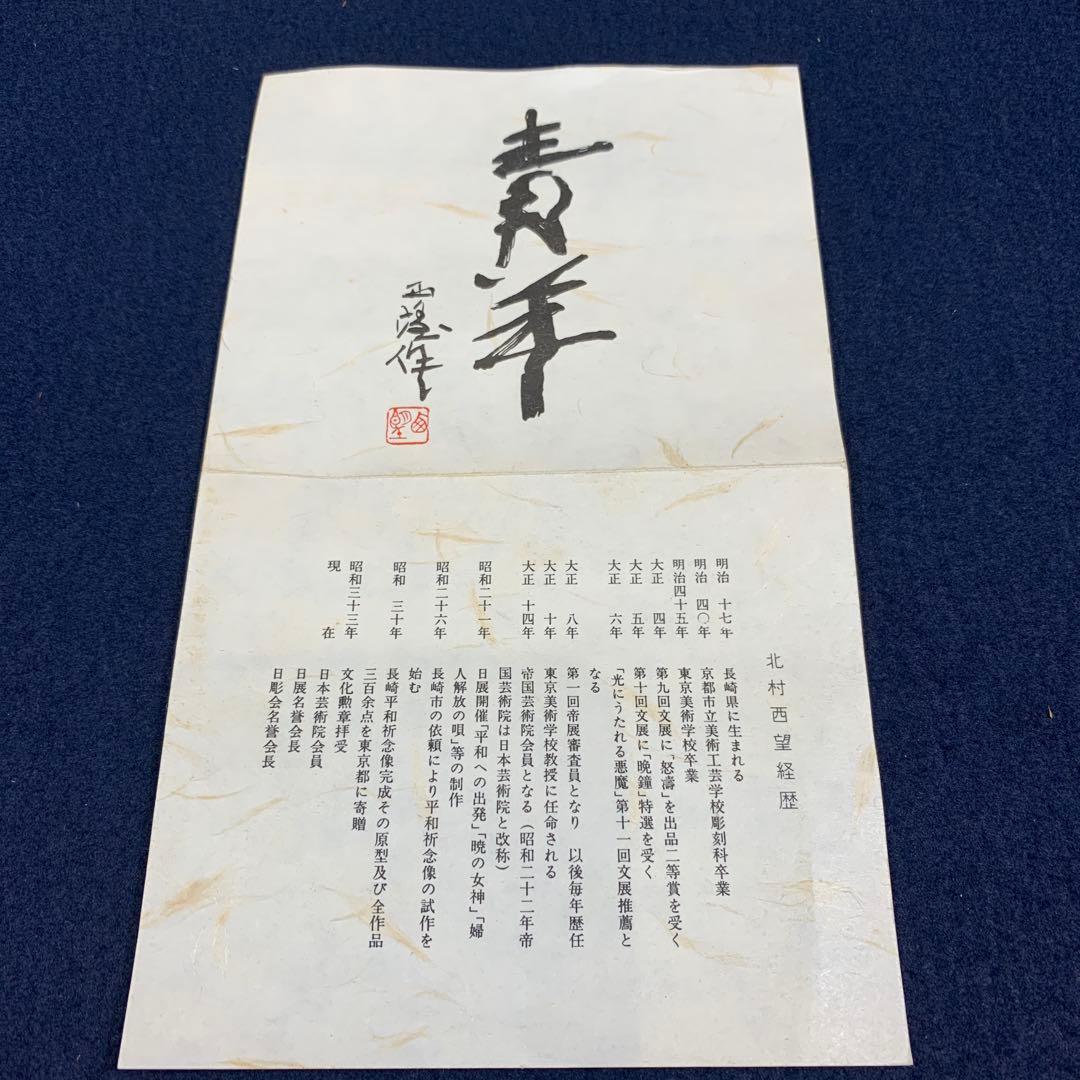 青羊
西望作
西望
北村西望経歴
明治 十七年 長崎県に生まれる
明治 四〇年 京都市立美術工芸学校彫刻科卒業
明治四十五年 東京美術学校卒業
大正 四年 第九回文展に「怒濤」を出品二等賞を受く
大正 五年 第十回文展に「晩鐘」特選を受く
大正 六年 「光にうたれる悪魔」第十一回文展推薦と
なる
大正 八年 第一回帝展審査員となり 以後毎年歴任
大正 十年 東京美術学校教授に任命される
大正 十四年 帝国芸術院会員となる(昭和二十二年帝
国芸術院は日本芸術院と改称)
昭和二十一年 日展開催「平和への出発」「暁の女神」「婦
人解放の唄」等の制作
昭和二十六年 長崎市の依頼により平和祈念像の試作を
始む
昭和 三十年 長崎平和祈念像完成その原型及び全作品
三百余点を東京都に寄贈
昭和三十三年 文化勲章拝受
現 在 日本芸術院会員
日展名誉会長
日彫会名誉会長